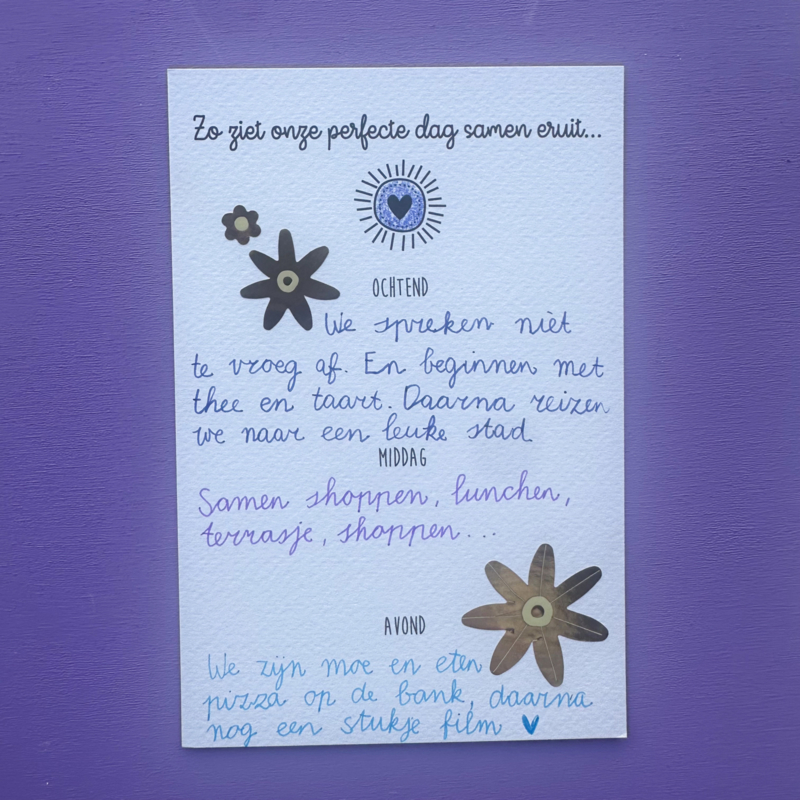 Zo ziet onze perfecte dag samen eruit...
OCHTEND
We spreken niet
te vroeg af. En beginnen met
thee en taart. Daarna reizen
we naar een leuke stad.
MIDDAG
Samen shoppen, lunchen,
terrasje, shoppen...
AVOND
We zijn moe en eten
pizza op de bank, daarna
nog een stukje film ♥